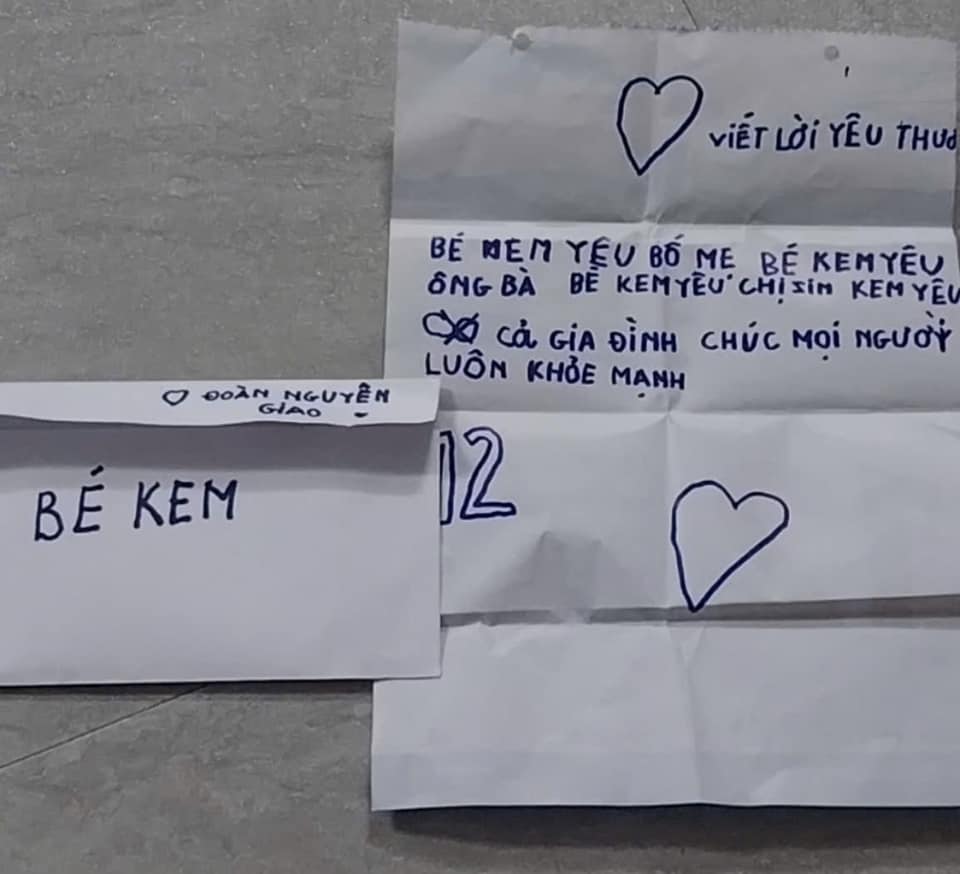 VIẾT LỜI YÊU THƯƠ
BÉ KEM YÊU BỐ MẸ BÉ KEM YÊU
ÔNG BÀ BÉ KEM YÊU CHỊ SIM KEM YÊU
CẢ GIA ĐÌNH CHÚC MỌI NGƯỜI
LUÔN KHỎE MẠNH
12
ĐOÀN NGUYÊN
GIAO
BÉ KEM